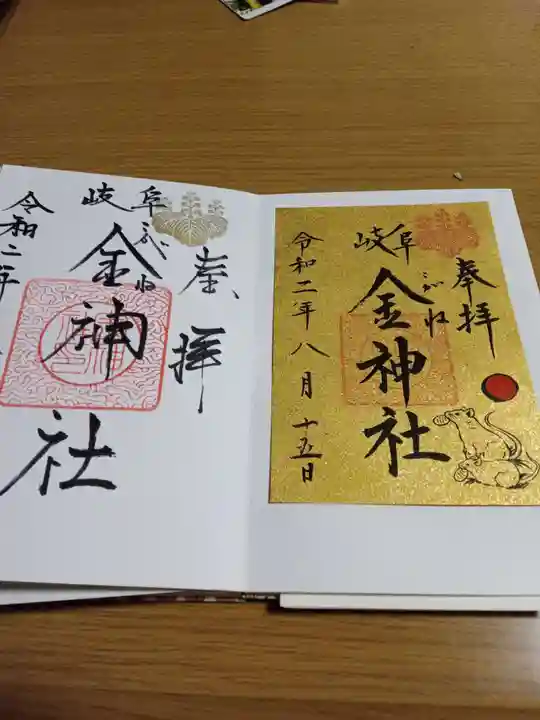 奉拝
岐阜
こがね
金神社
令和二年
奉拝
岐阜
こがね
金神社
令和二年八月十五日